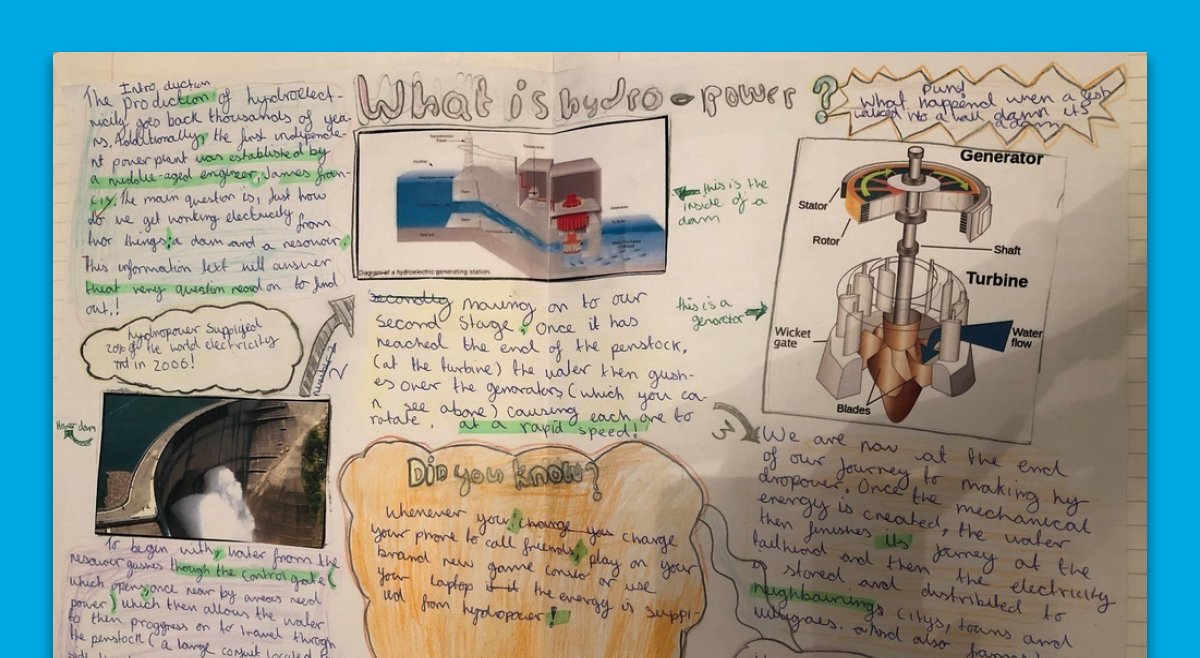 What is hydro-power?
Intro duction
The production of hydroelect-
ricity goes back thousands of yea-
rs. Additionally, the first independe-
nt power plant was established by
a middle-aged engineer, James fran-
cis. The main question is, Just how
do we get working electricity from
two things: a dam and a resovoir.
This information text will answer
theat very question read on to find
out!!
hydropower
20% of the world electricity
in 2006!
Hover dam
number
To begin with, water from the
resovoir gushes though the control gate (
which opens once near by areas need
power) which then allows the water
to then proggress on to travel through
the penstock (a large
Diagram of a hydroelectric generating station.
this is the
inside of a
dam
secondly moving on to our
second stage, Once it has
reached the end of the penstock,
(at the turbine) the water then gush-
es over the generators (which you ca-
n see above) causing each one to
rotate. at a rapid speed!
this is a
Did you know?
Whenever you, change you charge
your phone to call friends, play on your
brand new game or use
your laptop the energy is suppl-
ied from hydropower!
Puns!
What happened wen a
walked into a wall damn its
a dam
Generator
Stator
Rotor
Shaft
Turbine
Wicket
gate
Water
flow
Blades
3
We are now at the end
of our journey to making hy
dropower. Once the mechanical
energy is created, the water
then finishes its jorney at the
tailhoad and then the electricity
is stored and distributed to
neighbourings citys, towns and
And also